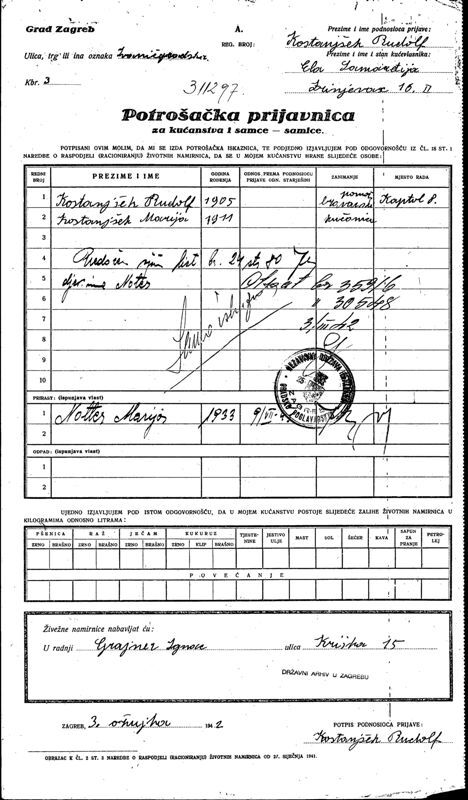 Grad Zagreb
A.
REG. BROJ:
Prezime i ime podnosioca prijave:
Kostanjšek Rudolf
Ulica, trg ili ina oznaka
Prezime i ime i stan kućevlasnika:
Kbr. 3
311297.
Potrošačka prijavnica
za kućanstva i samce — samice.
POTPISANI OVIM MOLIM, DA MI SE IZDA POTROŠAČKA ISKAZNICA, TE PODJEDNO IZJAVLJUJEM POD ODGOVORNOŠĆU IZ ČL. 18 ST. 1
NAREDBE O RASPODJELI (RACIONIRANJU) ŽIVOTNIH NAMIRNICA, DA SE U MOJEM KUĆANSTVU HRANE SLIJEDEĆE OSOBE:
REDNI BROJ PREZIME I IME GODINA ROĐENJA ODNOS PREMA PODNOSIOCU PRIJAVE ODN. STARJEŠINI ZANIMANJE MJESTO RADA
1 Kostanjšek Rudolf 1905 Kaptol 8.
2 Kostanjšek Marija 1911 kućanica
3
4 list br. 24 str. 80
5 Notter Otkaz br 35916
6 " 30548
7 3/III 42
8
9
10
PRIRAST: (ispunjava vlast)
1 Notter Marija 1933
2
OTPAD: (ispunjava vlast)
1
2
UJEDNO IZJAVLJUJEM POD ISTOM ODGOVORNOŠĆU, DA U MOJEM KUĆANSTVU POSTOJE SLIJEDEĆE ZALIHE ŽIVOTNIH NAMIRNICA U
KILOGRAMIMA ODNOSNO LITRAMA:
PŠENICA RAŽ JEČAM KUKURUZ TJESTENINE JESTIVO ULJE MAST SOL ŠEĆER KAVA SAPUN ZA PRANJE PETROLEJ
ZRNO BRAŠNO ZRNO BRAŠNO ZRNO BRAŠNO ZRNO KLIP BRAŠNO
POVEĆANJE
Živežne namirnice nabavljat ću:
U radnji Grajner Ignac ulica Kriška 15
DRŽAVNI ARHIV U ZAGREBU
ZAGREB, 3. ožujka 1942
POTPIS PODNOSIOCA PRIJAVE:
Kostanjšek Rudolf
OBRAZAC K ČL. 2 ST. 3 NAREDBE O RASPODJELI (RACIONIRANJU) ŽIVOTNIH NAMIRNICA OD 27. SIJEČNJA 1941.